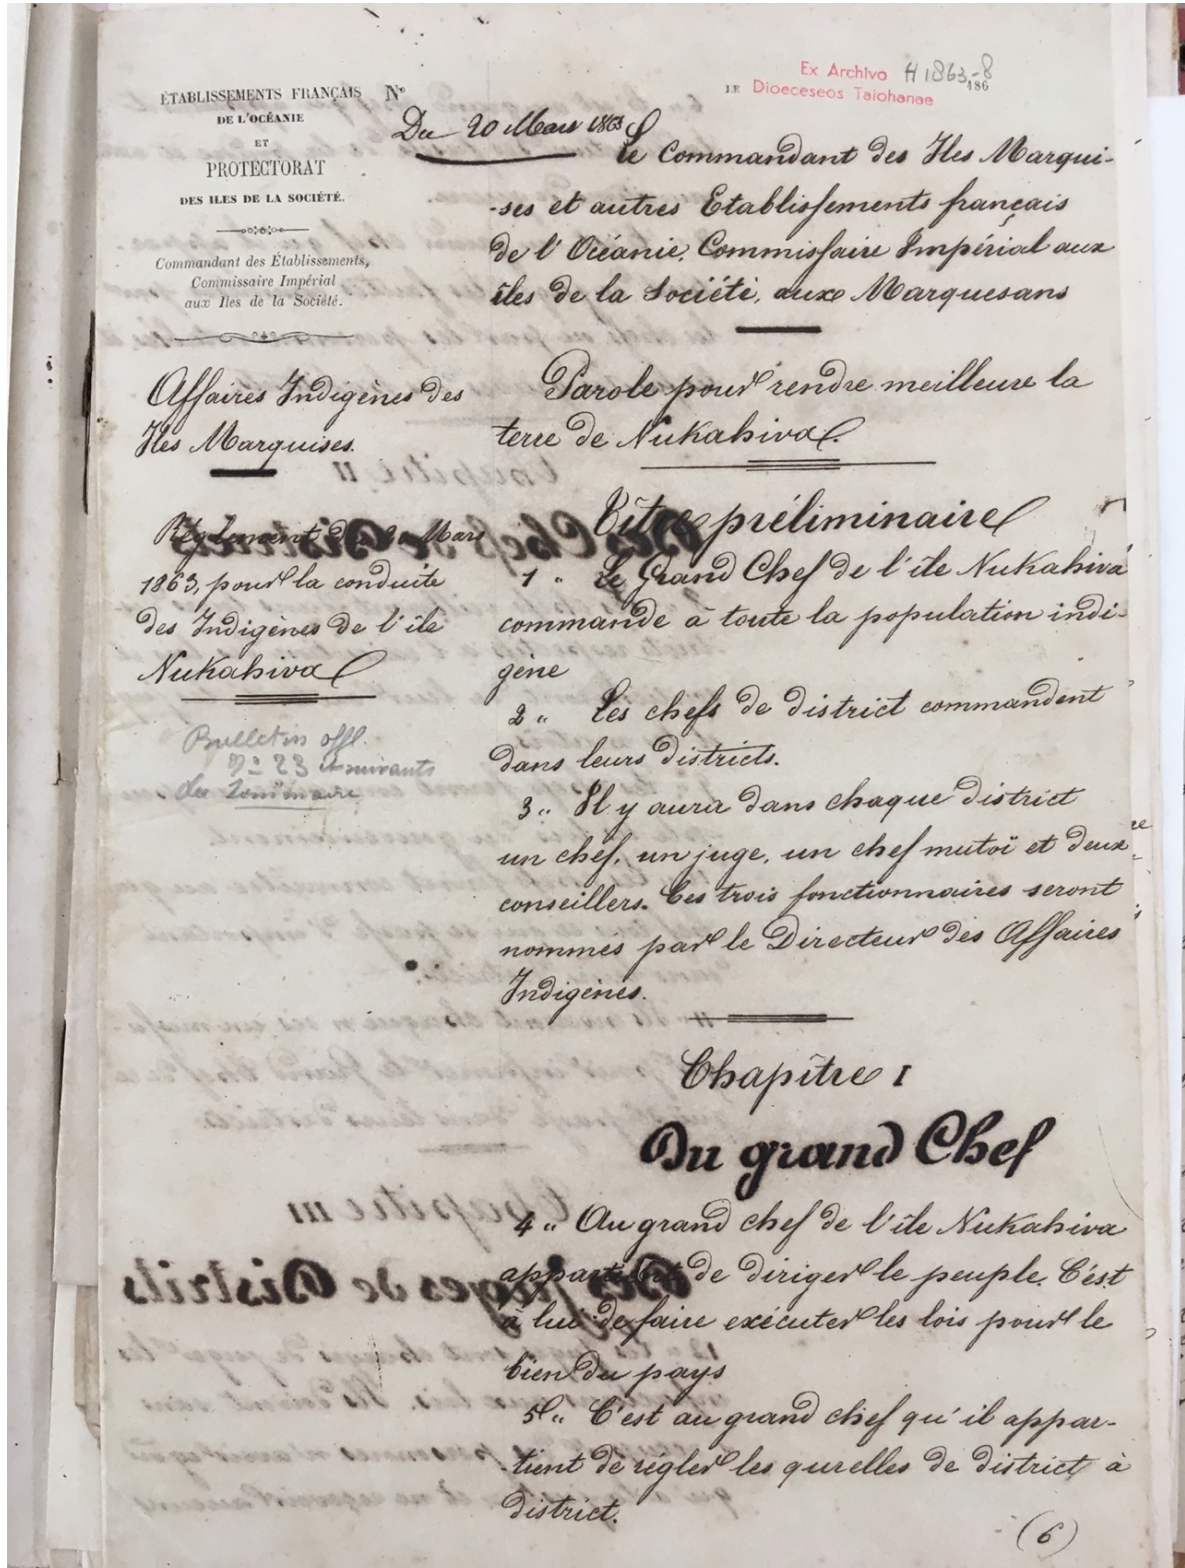 Ex Archivo H 1863-8
LE Dioeceseos Taiohanae 186
ÉTABLISSEMENTS FRANÇAIS
DE L'OCÉANIE
ET
PROTECTORAT
DES ILES DE LA SOCIÉTÉ.
Commandant des Établissements,
Commissaire Impérial
aux Iles de la Société.
Affaires Indigènes des
Iles Marquises.
Règlement du 20 Mars
1863, pour la conduite
des Indigènes de l'île
Nukahiva
Bulletin offl.
Nº 23 et suivants
du Sommaire
Nº
Du 20 Mars 1863
Le Commandant des Iles Marqui-
-ses et autres Etablissements français
de l'Océanie, Commissaire Impérial aux
îles de la Société, aux Marquesans
Parole pour rendre meilleure la
terre de Nukahiva.
Titre préliminaire
1 " Le Grand Chef de l'île Nukahiva
commande à toute la population indi-
gène
2 " Les chefs de district commandent
dans leurs districts.
3 " Il y aura dans chaque district
un chef, un juge, un chef mutoï et deux
conseillers. Ces trois fonctionnaires seront
nommés par le Directeur des Affaires
Indigènes.
Chapître I
Du grand Chef
4 " Au grand chef de l'île Nukahiva
appartient de diriger le peuple. C'est
à lui de faire exécuter les lois pour le
bien du pays
5 " C'est au grand chef qu'il appar-
-tient de régler les qurelles de district à
district.
(6)